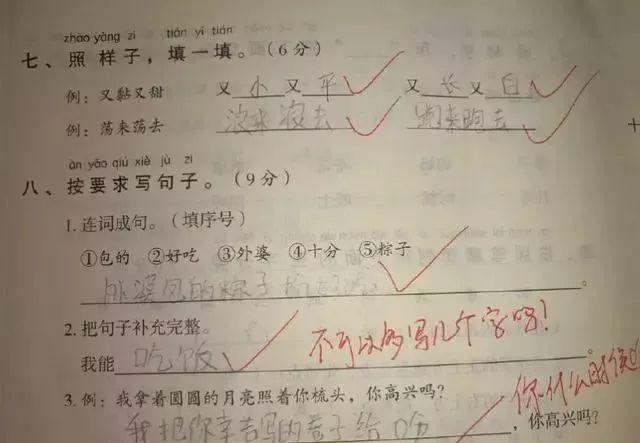 zhào yàng zi tián yi tián
七、照样子,填一填。(6分)
例:又黏又甜 又小又平 又长又白
例:荡来荡去 来 去 跑来跑去
àn yāo qiú xiě jù zi
八、按要求写句子。(9分)
1.连词成句。(填序号)
①包的 ②好吃 ③外婆 ④十分 ⑤粽子
外婆包的粽子
2.把句子补充完整。
我能吃饭。 不可以多写几个字吗!
3.例:我拿着圆圆的月亮照着你梳头,你高兴吗? 你什么时候
我把你辛苦写的卷子给吃,你高兴吗?